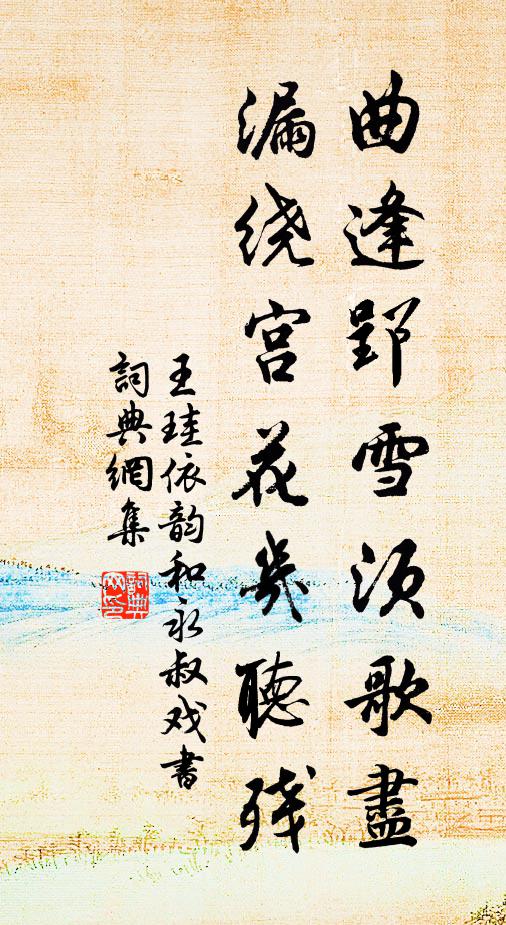 曲逢郢雪须歌盡
漏绕宫花幾聽残
王珪依韵和永叔戏書
詞典網集